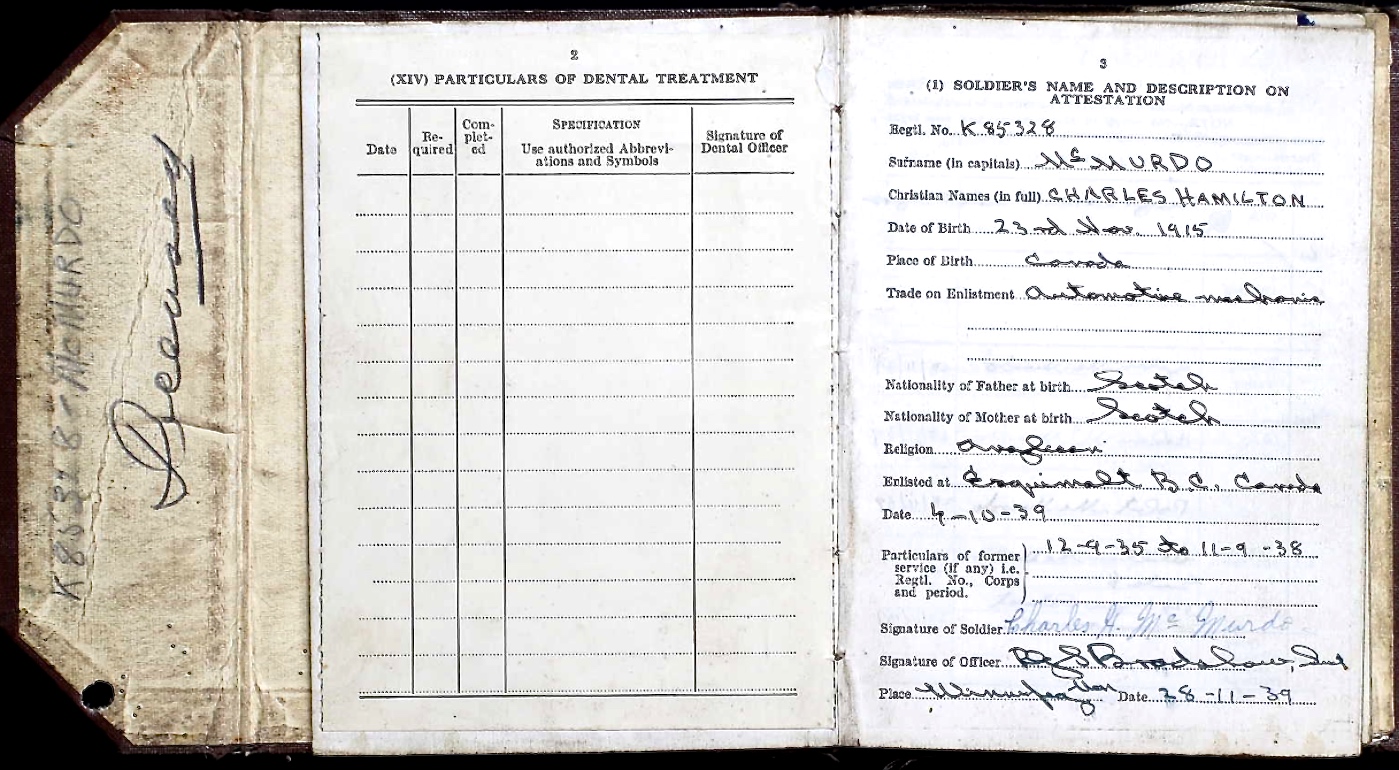 K 85328 - McMURDO
2
(XIV) PARTICULARS OF DENTAL TREATMENT
Date
Re-
quired
Com-
plet-
ed
SPECIFICATION
Use authorized Abbrevi-
ations and Symbols
Signature of
Dental Officer
3
(1) SOLDIER'S NAME AND DESCRIPTION ON
ATTESTATION
Regtl. No. K 85328
Surname (in capitals) McMURDO
Christian Names (in full) CHARLES HAMILTON
Date of Birth 23rd Nov. 1915
Place of Birth Canada
Trade on Enlistment Automotive mechanic
Nationality of Father at birth Scotch
Nationality of Mother at birth Scotch
Religion Anglican
Enlisted at Esquimalt B.C. Canada
Date 4-10-39
Particulars of former
service (if any) i.e.
Regtl. No., Corps
and period.
12-9-35 to 11-9-38
Signature of Soldier Charles H. McMurdo
Signature of Officer Bradshaw,
Place Date 28-11-39